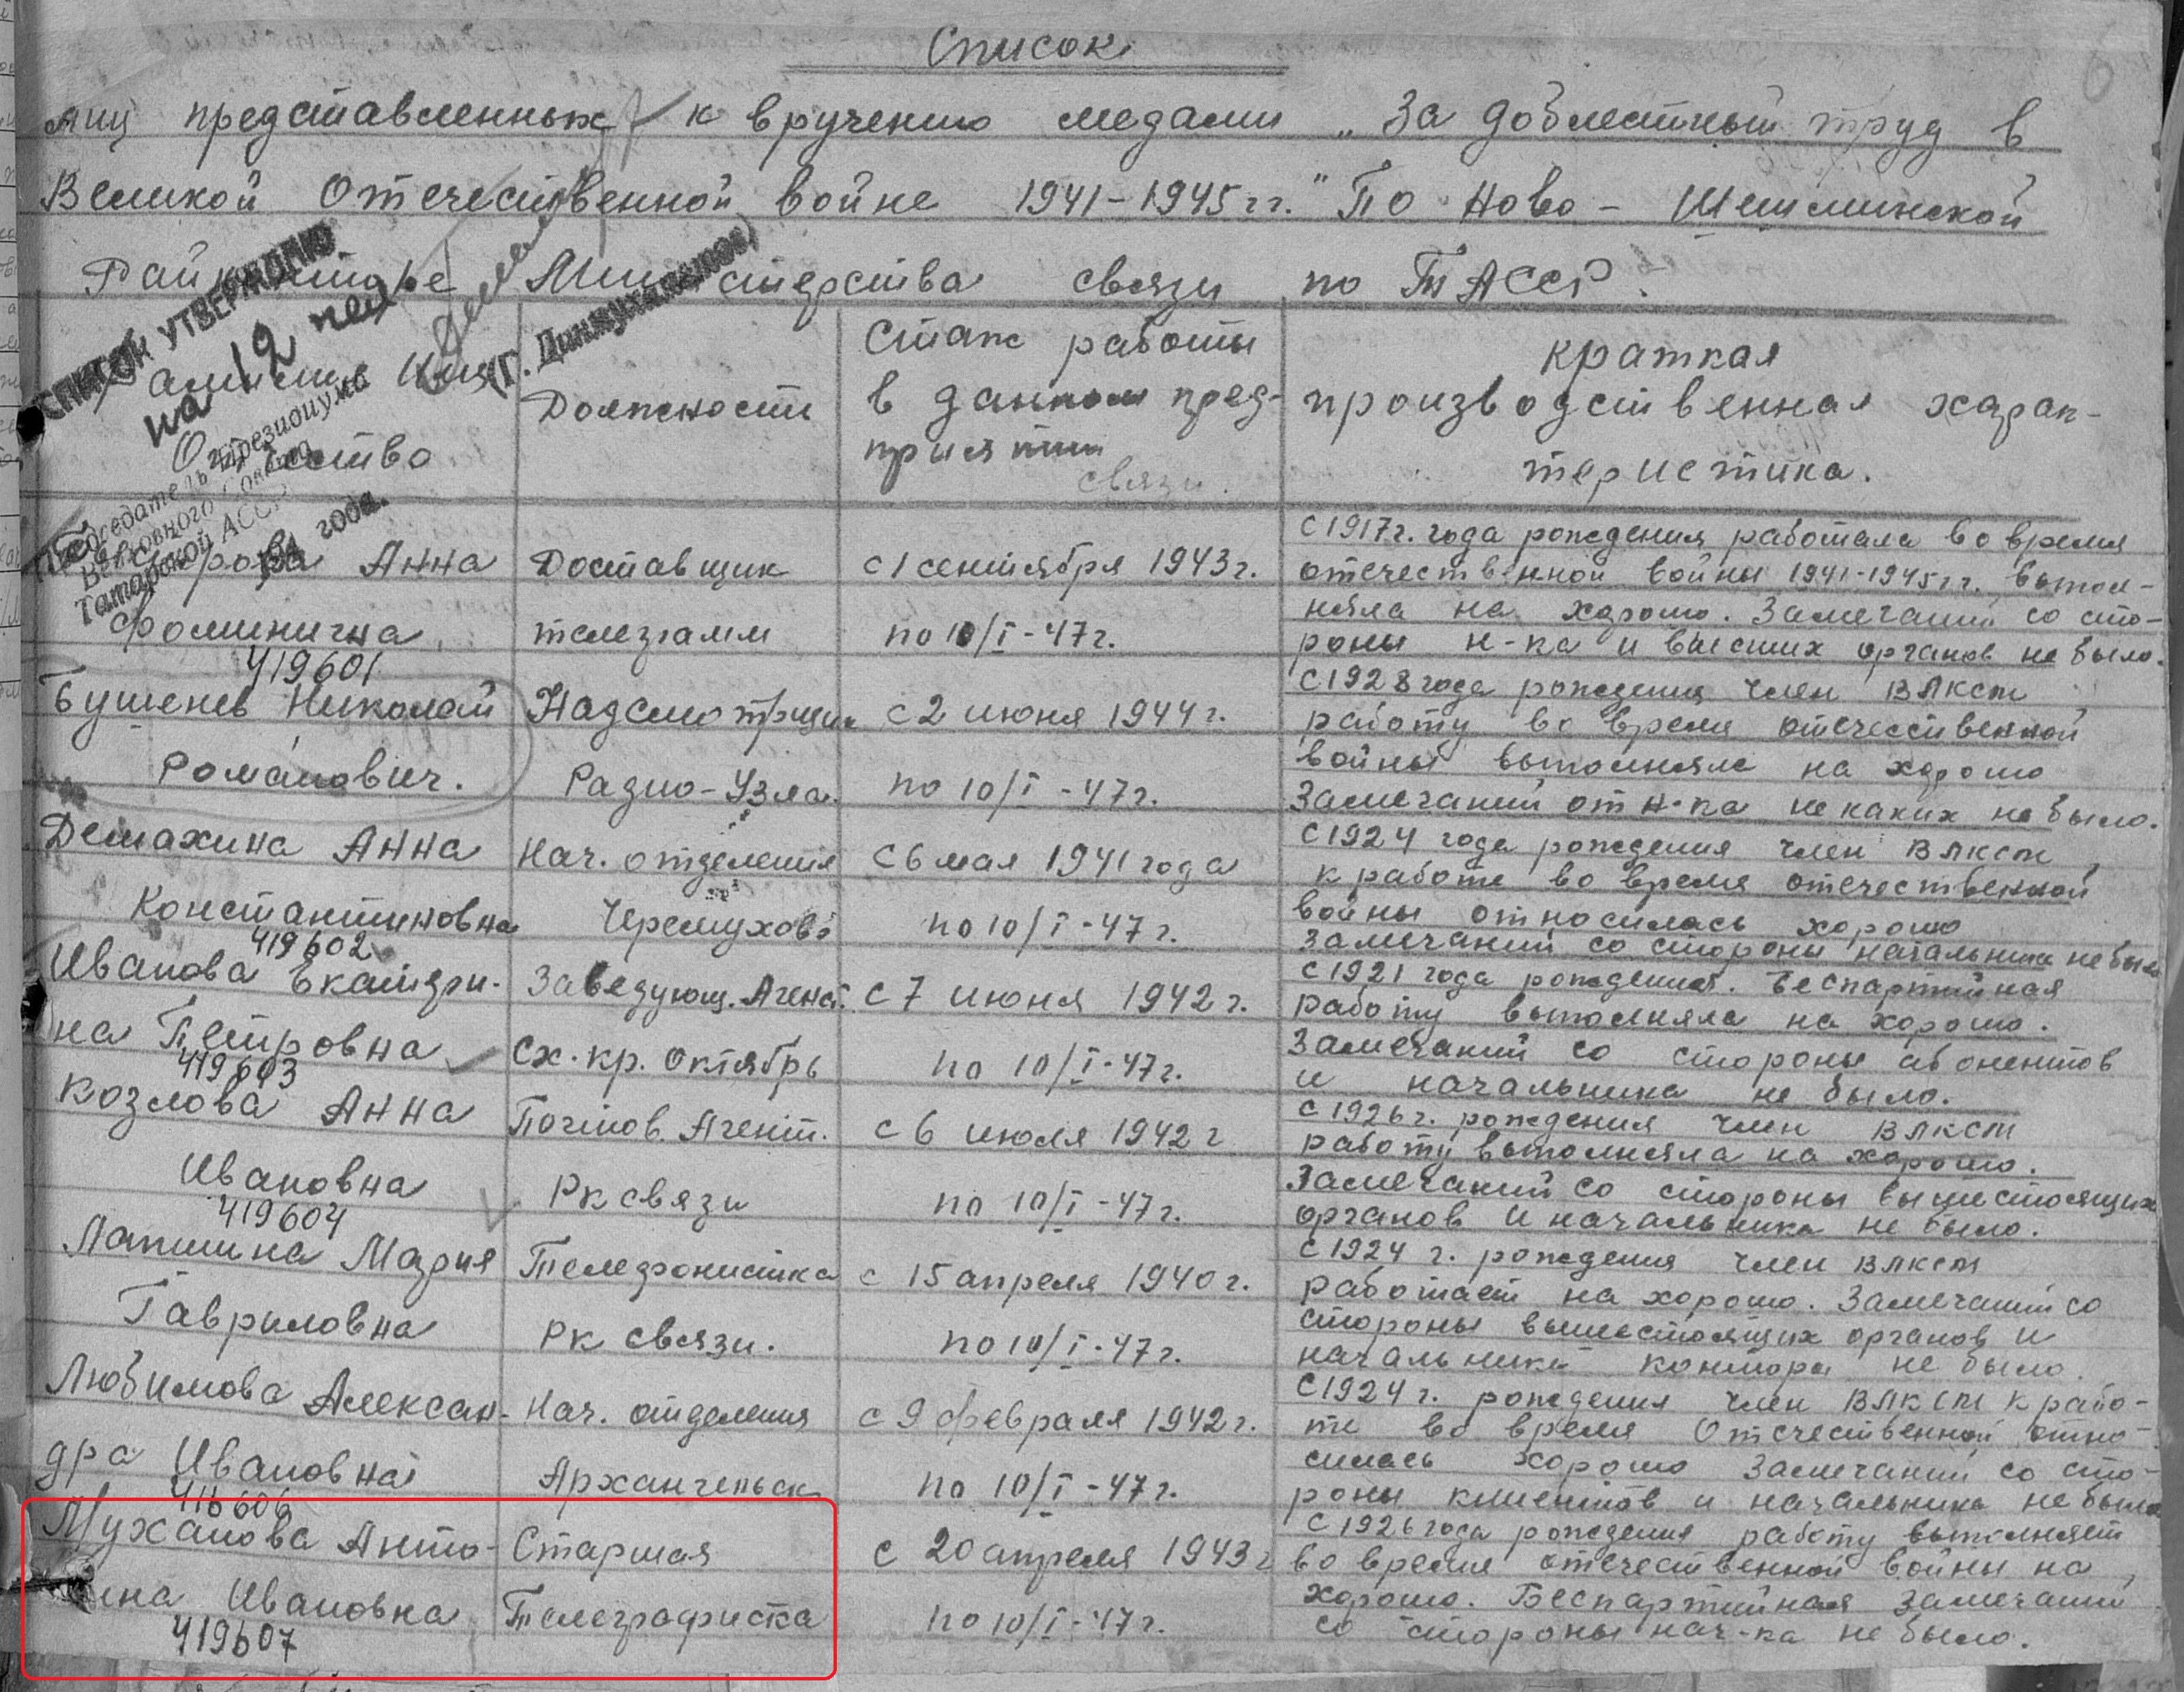 Список
лиц представленных к вручению медали „За доблестный труд в
Великой Отечественной войне 1941-1945 гг." По Ново-Шешминской
Райконторе Министерства связи по ТАССР.
СПИСОК УТВЕРЖДАЮ
на 12 чел
Председатель Президиума
Верховного Совета
Татарской АССР
(Г. Динмухаметов)
194 года.
Фамилия Имя
Отчество
Должность
Стаж работы
в данном пред-
приятии
связи.
Краткая
производственная харак-
теристика.
Анна
Фоминична
419601
Доставщик
телеграмм
с 1 сентября 1943 г.
по 10/I-47 г.
С 1917 г. года рождения работала во время
отечественной войны 1941-1945 гг. выпол-
няла на хорошо. Замечаний со сто-
роны н-ка и высших органов не было.
Бушенев Николай
Романович.
Надсмотрщик
Радио-Узла.
с 2 июня 1944 г.
по 10/I-47 г.
С 1928 года рождения член ВЛКСМ
работу во время отечественной
войны выполнял на хорошо
Замечаний от н-ка некаких не было.
Демахина Анна
Константиновна
419602
Нач. отделения
Черемухово
с 6 мая 1941 года
по 10/I-47 г.
С 1924 года рождения член ВЛКСМ,
к работе во время отечественной
войны относилась хорошо
Замечаний со стороны начальника не было
Иванова Екатери-
на Петровна
419603
Заведующ. Агент.
Сх. Кр. Октябрь
с 7 июня 1942 г.
по 10/I-47 г.
С 1921 года рождения. Беспартийная
работу выполняла на хорошо.
Замечаний со стороны абонентов
и начальника не было.
Козлова Анна
Ивановна
419604
Почтов. Агент.
Рк связи
с 6 июля 1942 г
по 10/I-47 г.
С 1926 г. рождения член ВЛКСМ
работу выполняла на хорошо.
Замечаний со стороны вышестоящих
органов и начальника не было.
Лапшина Мария
Гавриловна
Телефонистка
Рк связи.
с 15 апреля 1940 г.
по 10/I-47 г.
С 1924 г. рождения член ВЛКСМ
работает на хорошо. Замечаний со
стороны вышестоящих органов и
начальника конторы не было.
Любимова Алексан-
дра Ивановна
419606
Нач. отделения
Архангельск
с 9 февраля 1942 г.
по 10/I-47 г.
С 1924 г. рождения член ВЛКСМ к рабо-
те во время Отечественной отно-
силась хорошо Замечаний со сто-
роны клиентов и начальника не было
Муханова Анто-
нина Ивановна
419607
Старшая
Телеграфистка
с 20 апреля 1943 г
по 10/I-47 г.
С 1926 года рождения работу выполняет
во время отечественной войны на
хорошо. Беспартийная Замечаний
со стороны нач-ка не было.